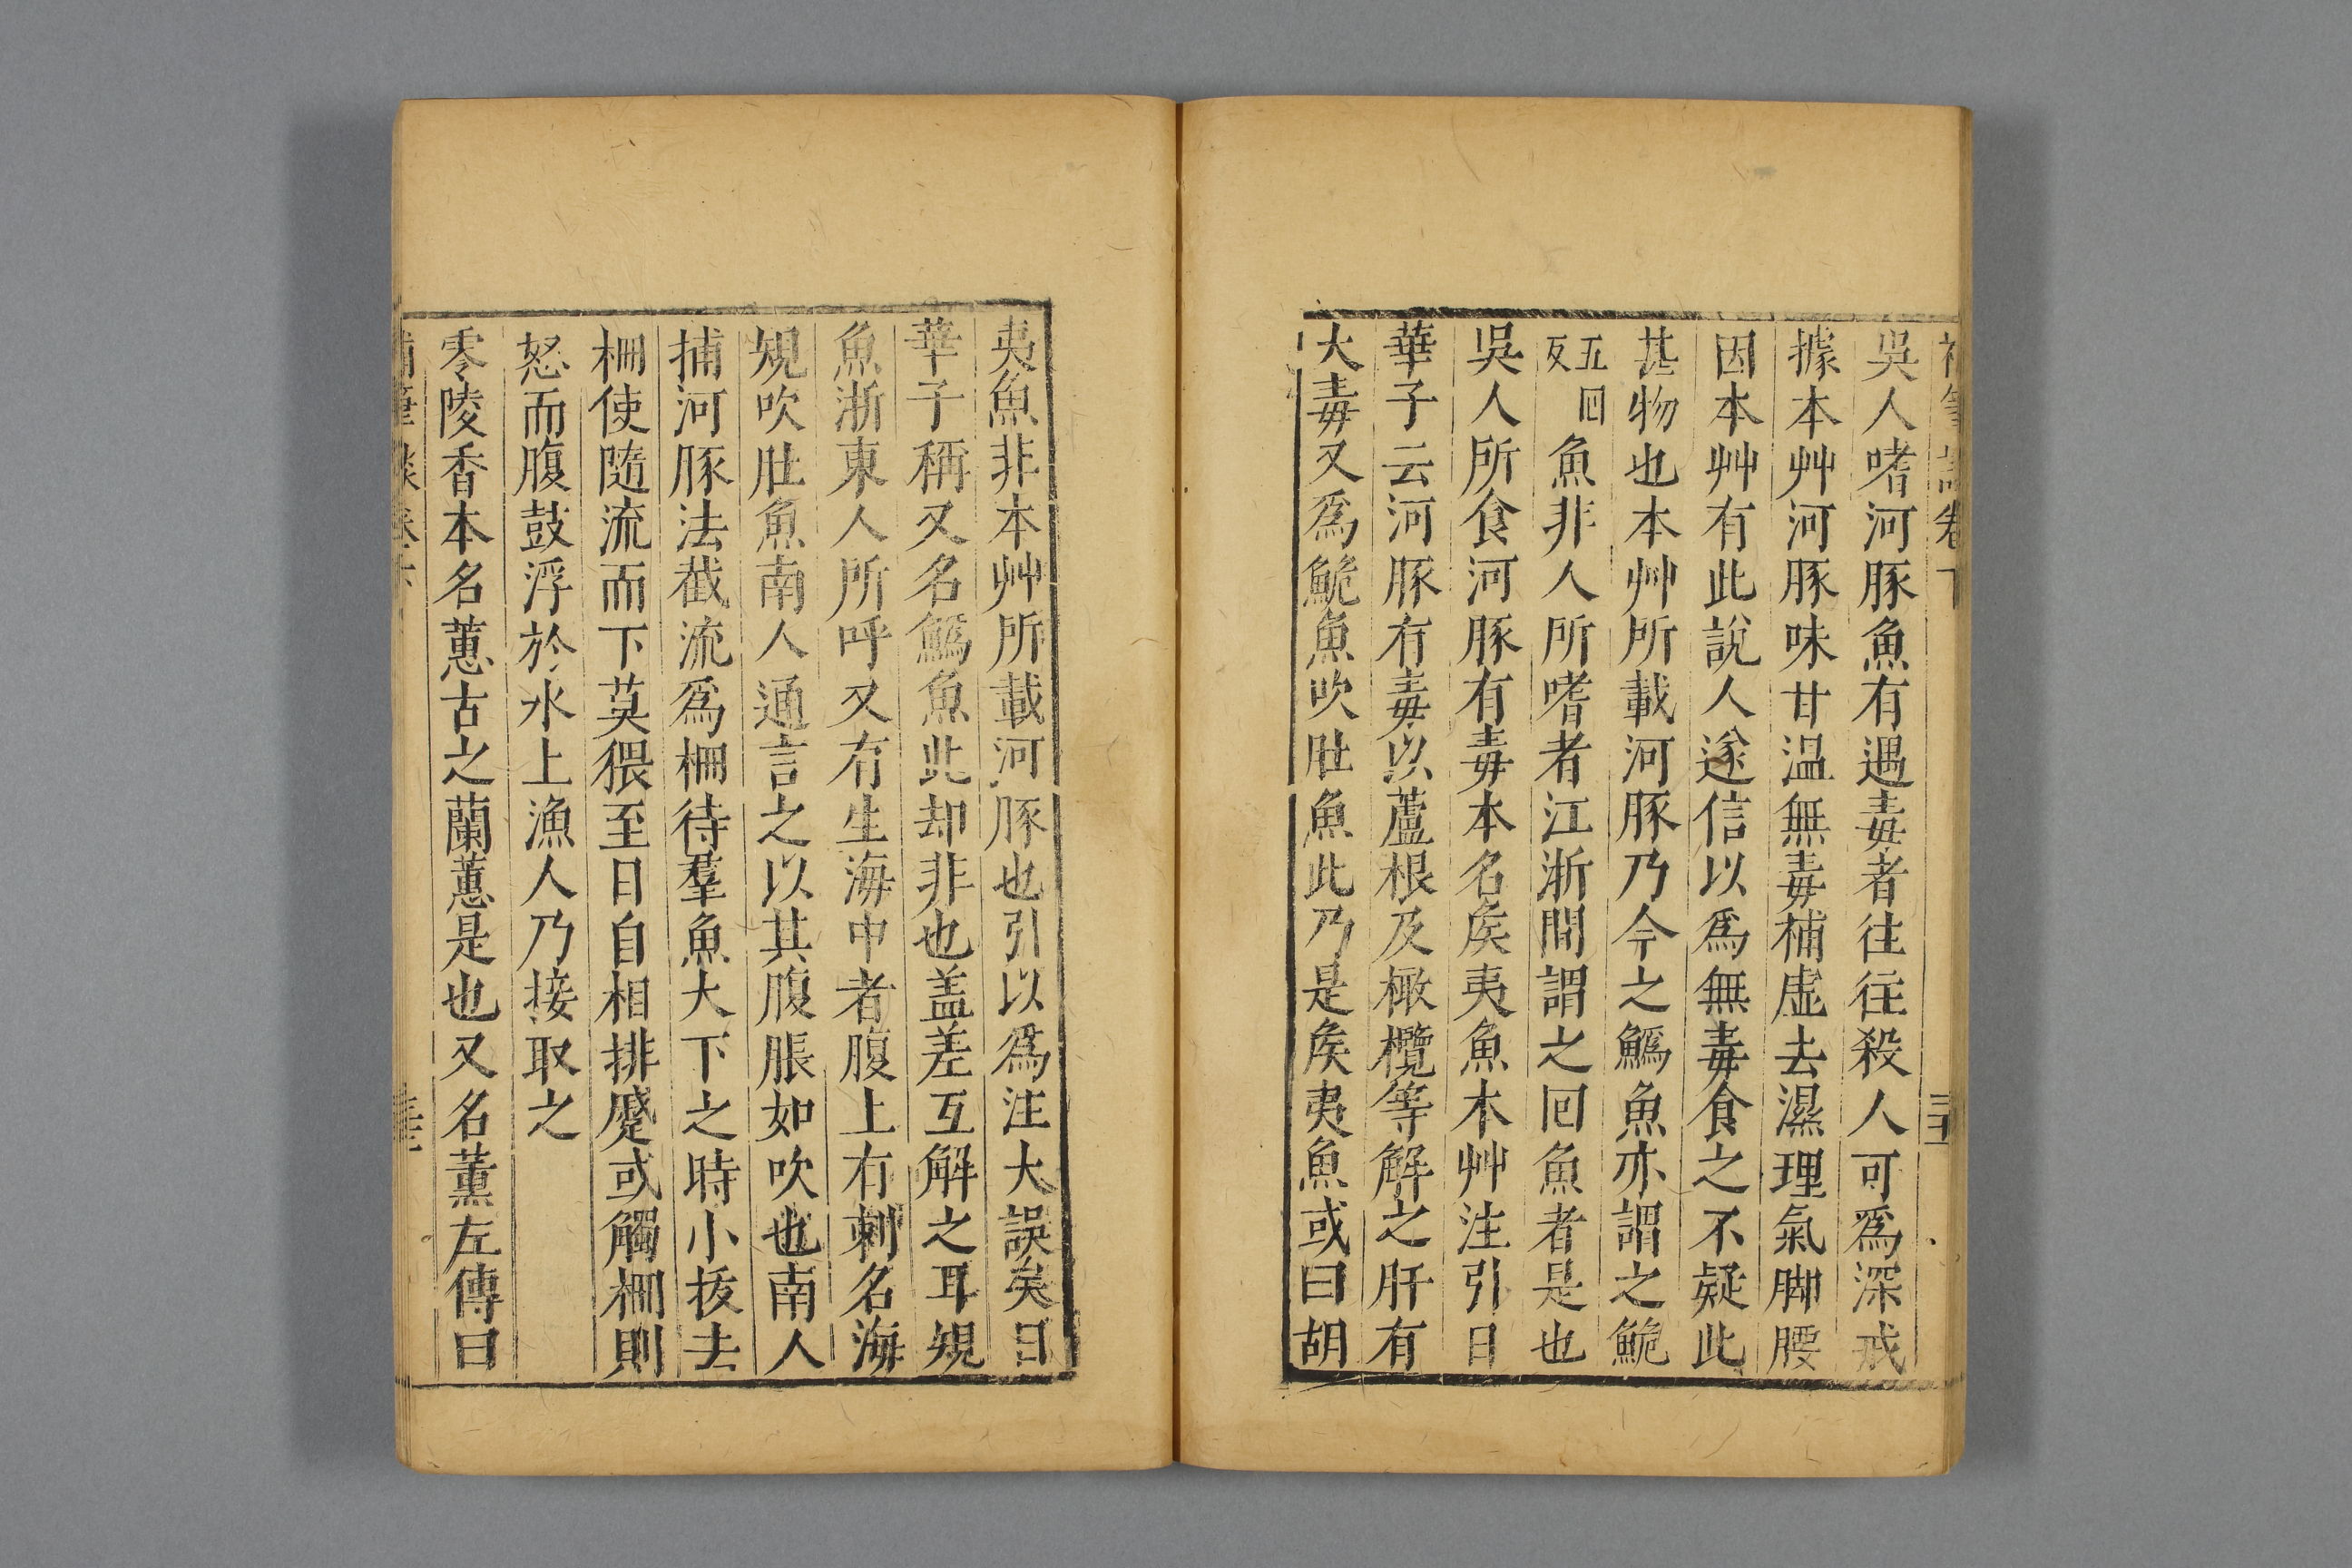 吳人嗜河豚魚有遇毒者往往殺人可爲深戒
據本艸河豚味甘温無毒補虛去濕理氣脚腰
因本艸有此說人遂信以爲無毒食之不疑此
甚物也本艸所載河豚乃今之鰞魚亦謂之鮠
五回反魚非人所嗜者江浙間謂之回魚者是也
吳人所食河豚有毒本名矦夷魚本艸注引日
華子云河豚有毒以蘆根及橄欖等解之肝有
大毒又爲鮠魚吹肚魚此乃是矦夷魚或曰胡
夷魚非本艸所載河豚也引以爲注大誤矣日
華子稱又名鰞魚此却非也盖差互解之耳規
魚浙東人所呼又有生海中者腹上有刺名海
規吹肚魚南人通言之以其腹脹如吹也南人
捕河豚法截流爲柵待羣魚大下之時小拔去
柵使隨流而下莫猥至日自相排蹙或觸柵則
怒而腹鼓浮於水上漁人乃接取之
零陵香本名蕙古之蘭蕙是也又名薰左傳曰